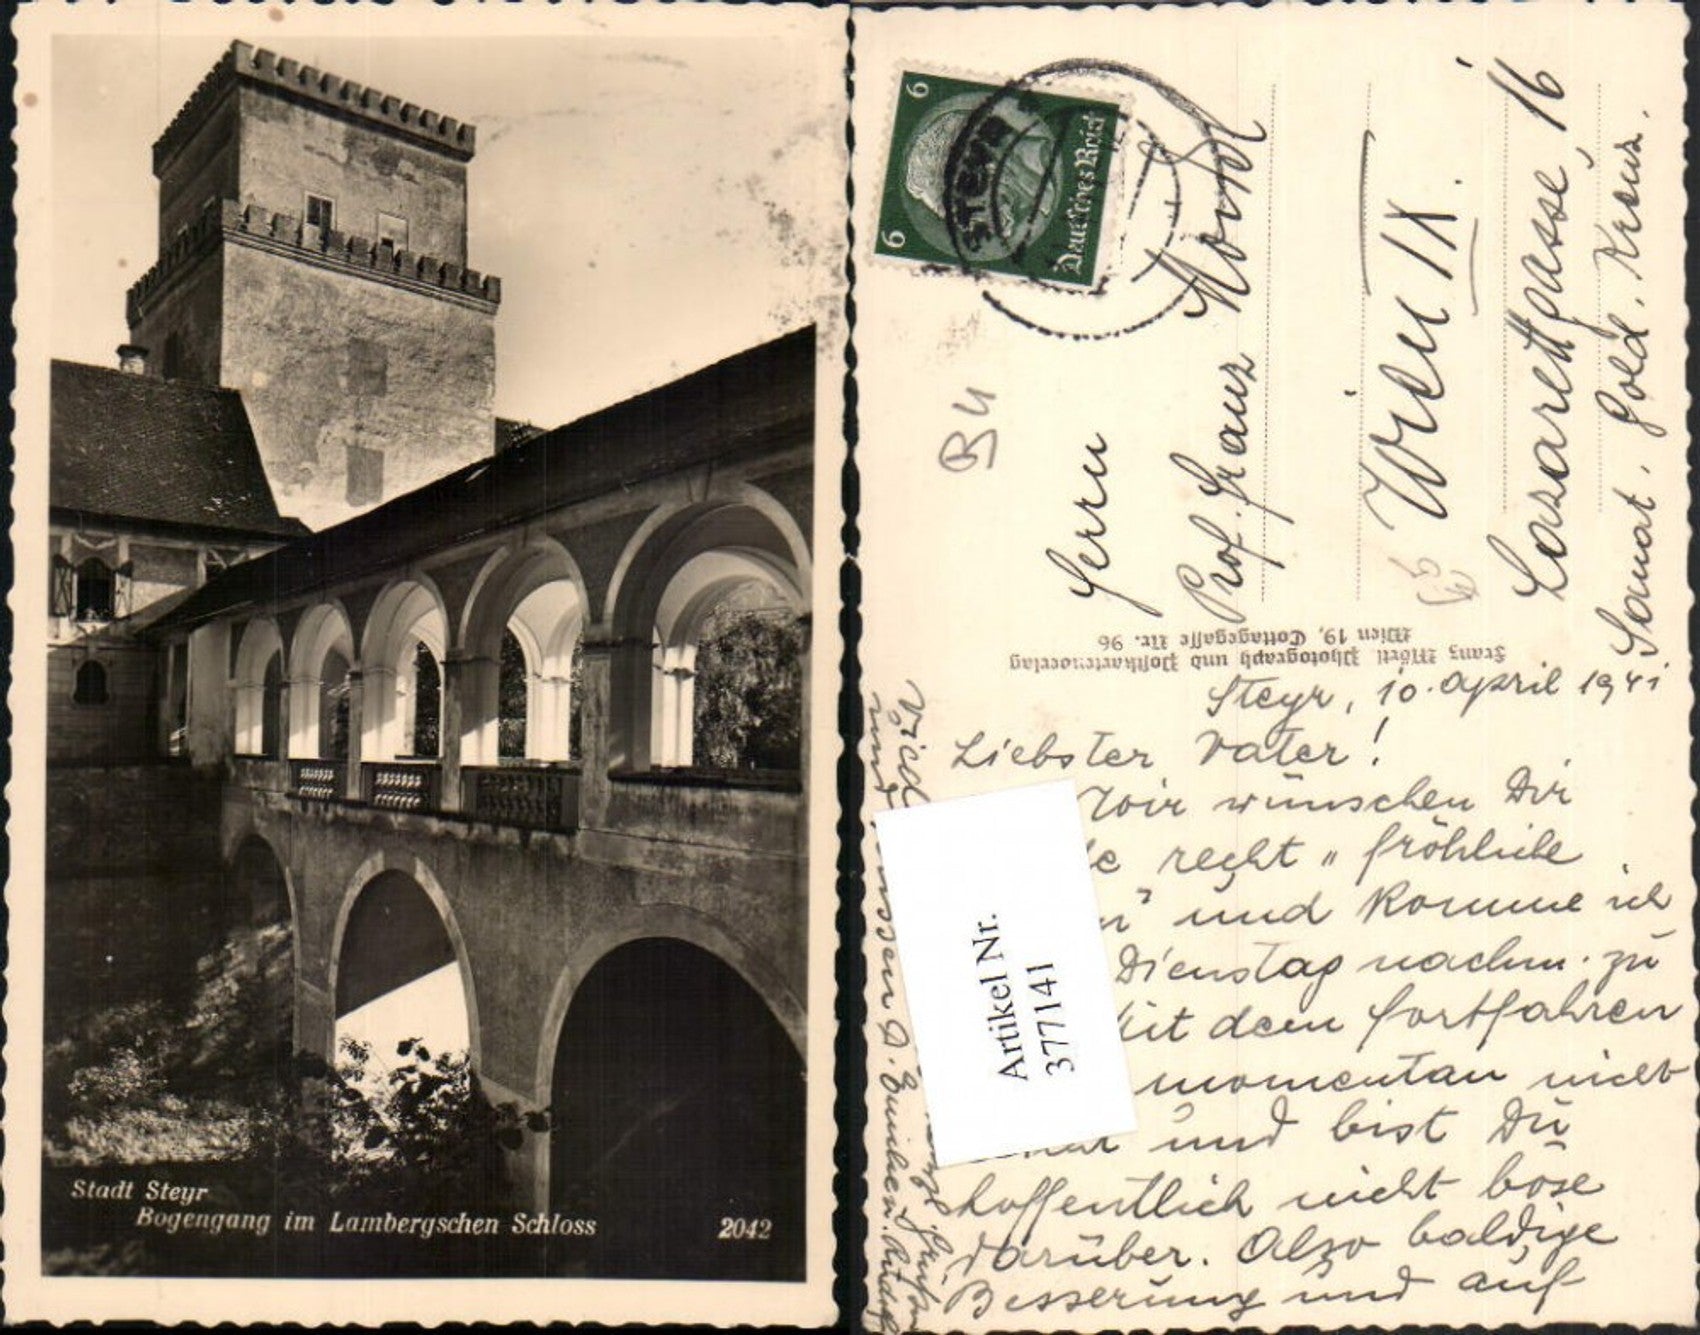 Stadt Steyr
Bogengang im Lambergschen Schloss 2042
6
6
Deutsches Reich
STEYR
B4
Herrn
Prof. Franz
Wien IX.
Lazarettgasse 16
Sanat. Gold. Kreuz.
Franz Mörtl Photograph und Postkartenverlag
Wien 19, Cottagegasse Nr. 96
Steyr, 10. April 1941
Liebster Vater!
Wir wünschen Dir
recht „fröhliche
und komme ich
Dienstag nachm. zu
mit dem Fortfahren
momentan nicht
und bist Du
hoffentlich nicht böse
darüber. Also baldige
Besserung und auf
Artikel Nr.
377141
und